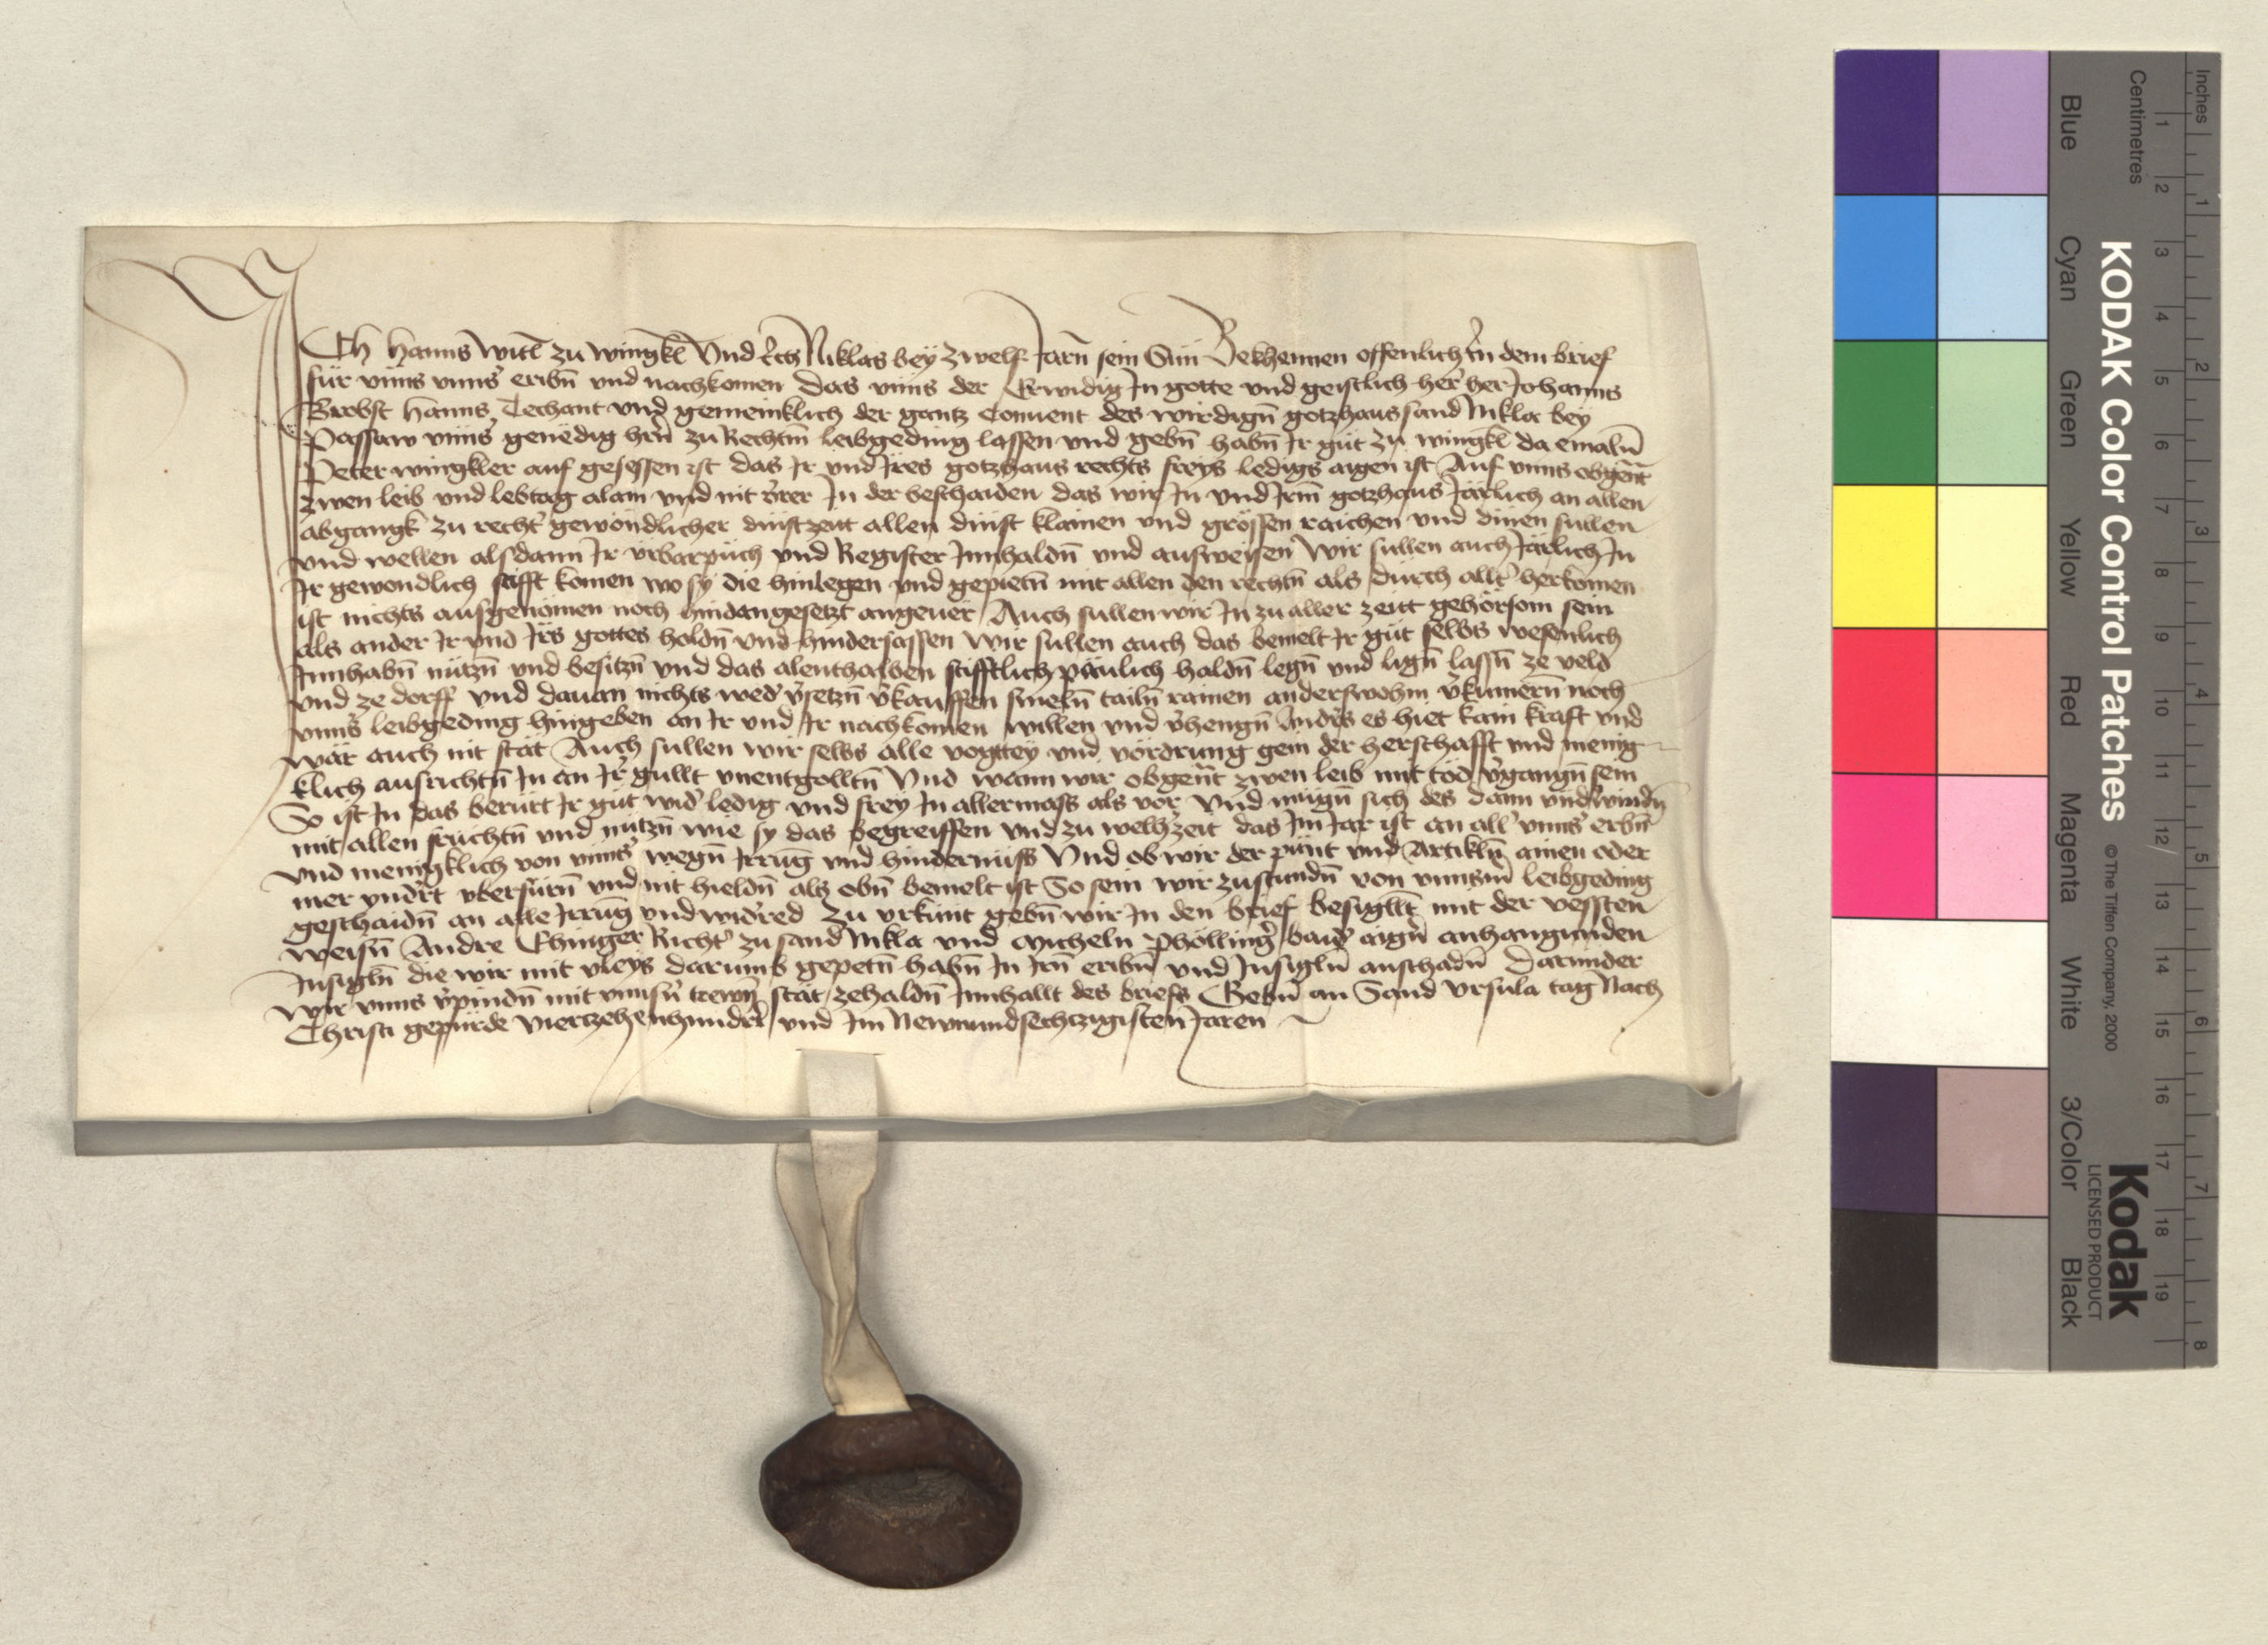 Ich Hanns Witl zu Wingkl Und Ich Niklas bey zwelf Jarn sein Sun Bekhennen offenlich In dem brief
für unns unns' eribn̄ und nachkomen Das unns der Erwidig In gotte und geistlich her' her Johanns
Brobst Hanns Techant und gemeinklich der gantz Convent des wirdign̄ gotzhaus sand Nikla bey
Passaw unns' genedig hrn̄ zu Rechtm̄ leibgeding lassen und gebn̄ habn̄ Ir gut zu wingkl da emaln̄
Peter wingkler auf gesessen ist das Ir und Ires gotzhaus rechts freys ledigs aigen ist Auf unns obgen̄t
zwen leib und lebtag alain und nit v'rer In der beschaiden das wir In und Irm̄ gotzhaus Järlich an allen
abgangk zu recht' gewondlicher dinstzeit allen dinst klainen und grossen raichen und dinen sullen
und wellen als dann Ir urbarpuch und Register Innhaldn̄ und ausweisen Wir sullen auch Järlich In
Ir gewondlich stifft komen wo sy die hinlegen und gepietn̄ mit allen den rechtn̄ als durch allt' herkomen
ist nichts ausgenomen noch hindangesetzt angeuer Auch sullen wir In zu aller zeitt gehörsom sein
als ander Ir und Irs gottes holdn̄ und hindersassen Wir sullen auch das bemelt Ir gut selbs wesenlich
Innhabn̄ nützn̄ und besitzn̄ und das alenthalben stifftlich paulich haldn̄ legn̄ und lign̄ lassn̄ ze veld
und ze dorff und dauan nichts wed' v'setzn̄ v'kauffen smeln̄ tailn̄ ramen anderswohin v'kumern̄ noch
unns' leibgeding hingeben an Ir und Ir nachkomen willen und v'hengn̄ Anders es hiet kain kraft und
wär auch nit stät Auch sullen wir selbs alle vogttey und vordrung gein der herschafft und menig
klich ausrichtn̄ In an Ir' gullt unentgolltn̄ Und wann wir obgen̄t zwen leib mit tod v'gangn̄ sein
So ist In das berürt Ir gut wid' ledig und frey In allermass als vor Und mügn̄ sich des dann und'windn̄
mit allen fruchtn̄ und nützn̄ wie sy das begreiffen und zu welh' zeit das Im Jar ist an all' unns' erbn̄
und menigklich von unns' wegn̄ Irrung und hindernüss Und ob wir der punt und Artikln̄ ainen oder
mer überfürn̄ und nit hieldn̄ als obn̄ bemelt ist So sein wir zustundn̄ von unnsm̄ leibgeding
geschaidn̄ an alle Irrung und wid'red Zu urkunt gebn̄ wir In den brief besigllt mit der vessten
weisn̄ Andre Ehinger Richt' zu sand Nikla und Micheln Phölling' baid' aign̄ anhangunden
Insigln̄ die wir mit vleys darumb gepetn̄ habn̄ In Irn̄ eribn̄ und Insigln̄ anschadn̄ Darunder
wir unns v'pindn̄ mit unnsn̄ trewn̄ stät zehaldn̄ Innhallt des briefs Gebn̄ an Sand Ursula tag Nach
Christi gepurde Viertzehenhundert und Im Newnundsechtzigisten Jaren
Inches
Centimetres
1 2 3 4 5 6 7 8 9 10 11 12 13 14 15 16 17 18 19
1 2 3 4 5 6 7 8
KODAK Color Control Patches
© The Tiffen Company, 2000
Kodak
LICENSED PRODUCT
Blue Cyan Green Yellow Red Magenta White 3/Color Black